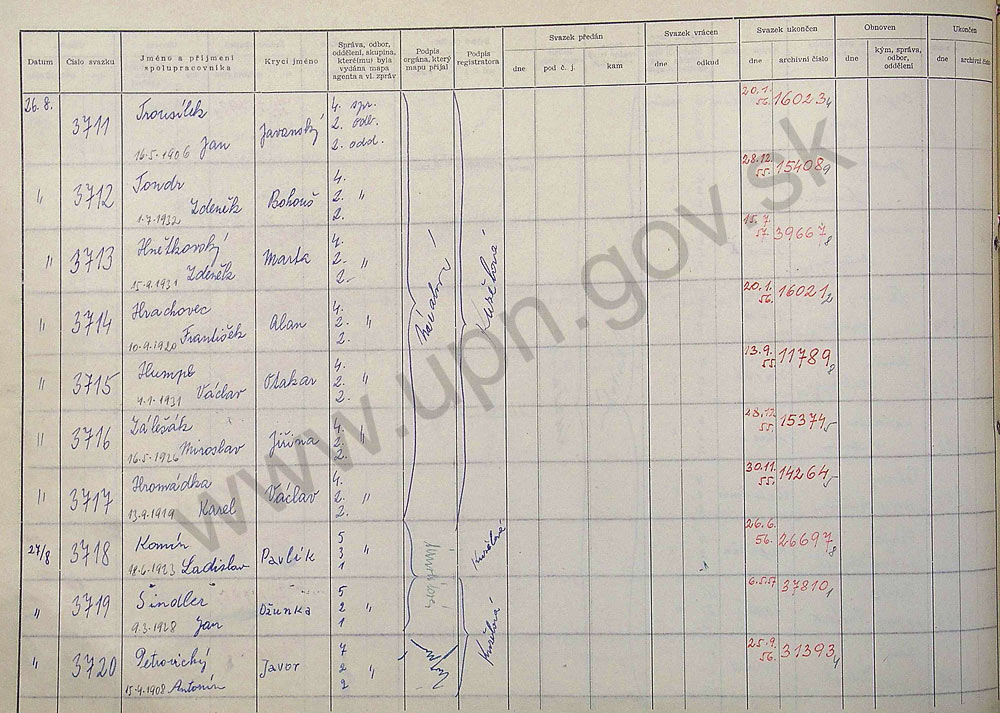 Datum
Číslo svazku
Jméno a příjmení
spolupracovníka
Krycí jméno
Správa, odbor,
oddělení, skupina,
které(mu) byla
vydána mapa
agenta a vl. zpráv
Podpis
orgána, který
mapu přijal
Podpis
registratora
Svazek předán
dne
pod č. j.
kam
Svazek vrácen
dne
odkud
Svazek ukončen
dne
archivní číslo
Obnoven
dne
kým, správa,
odbor,
oddělení
Ukončen
dne
archivní číslo
26.8. 3711 Trousílek Javanský 4. spr. 20.1. 16023 4
16.5.1906 Jan 2. odb. 56.
2. odd.
" 3712 Tondr Bohouš 4. 28.12. 15408 9
1.7.1932 Zdeněk 2. " 55.
2.
" 3713 Hnětkovský Marta 4. 15.7 39667 8
15.9.1931 Zdeněk 2. " 57.
2.
" 3714 Hrachovec Alan 4. 20.1. 16021 2
10.9.1920 František 2. " 56.
2.
" 3715 Humpl Otakar 4. 13.9. 11789 8
4.1.1931 Václav 2. " 55.
2.
" 3716 Zálešák Jiřina 4. 28.12 15374 5
16.5.1926 Miroslav 2. " 55.
2.
" 3717 Hromádka Václav 4. 30.11. 14264 5
13.9.1919 Karel 2. " 55.
2.
27/8 3718 Komín Pavlík 5 26.6. 26697 8
18.6.1923 Ladislav 3 " 56.
1
" 3719 Šindler Džunka 5 6.5.57 37810 1
9.3.1928 Jan 2 "
1
" 3720 Petrovický Javor 7 25.9. 31393 4
15.4.1908 Antonín 2 " 56.
2
www.upn.gov.sk